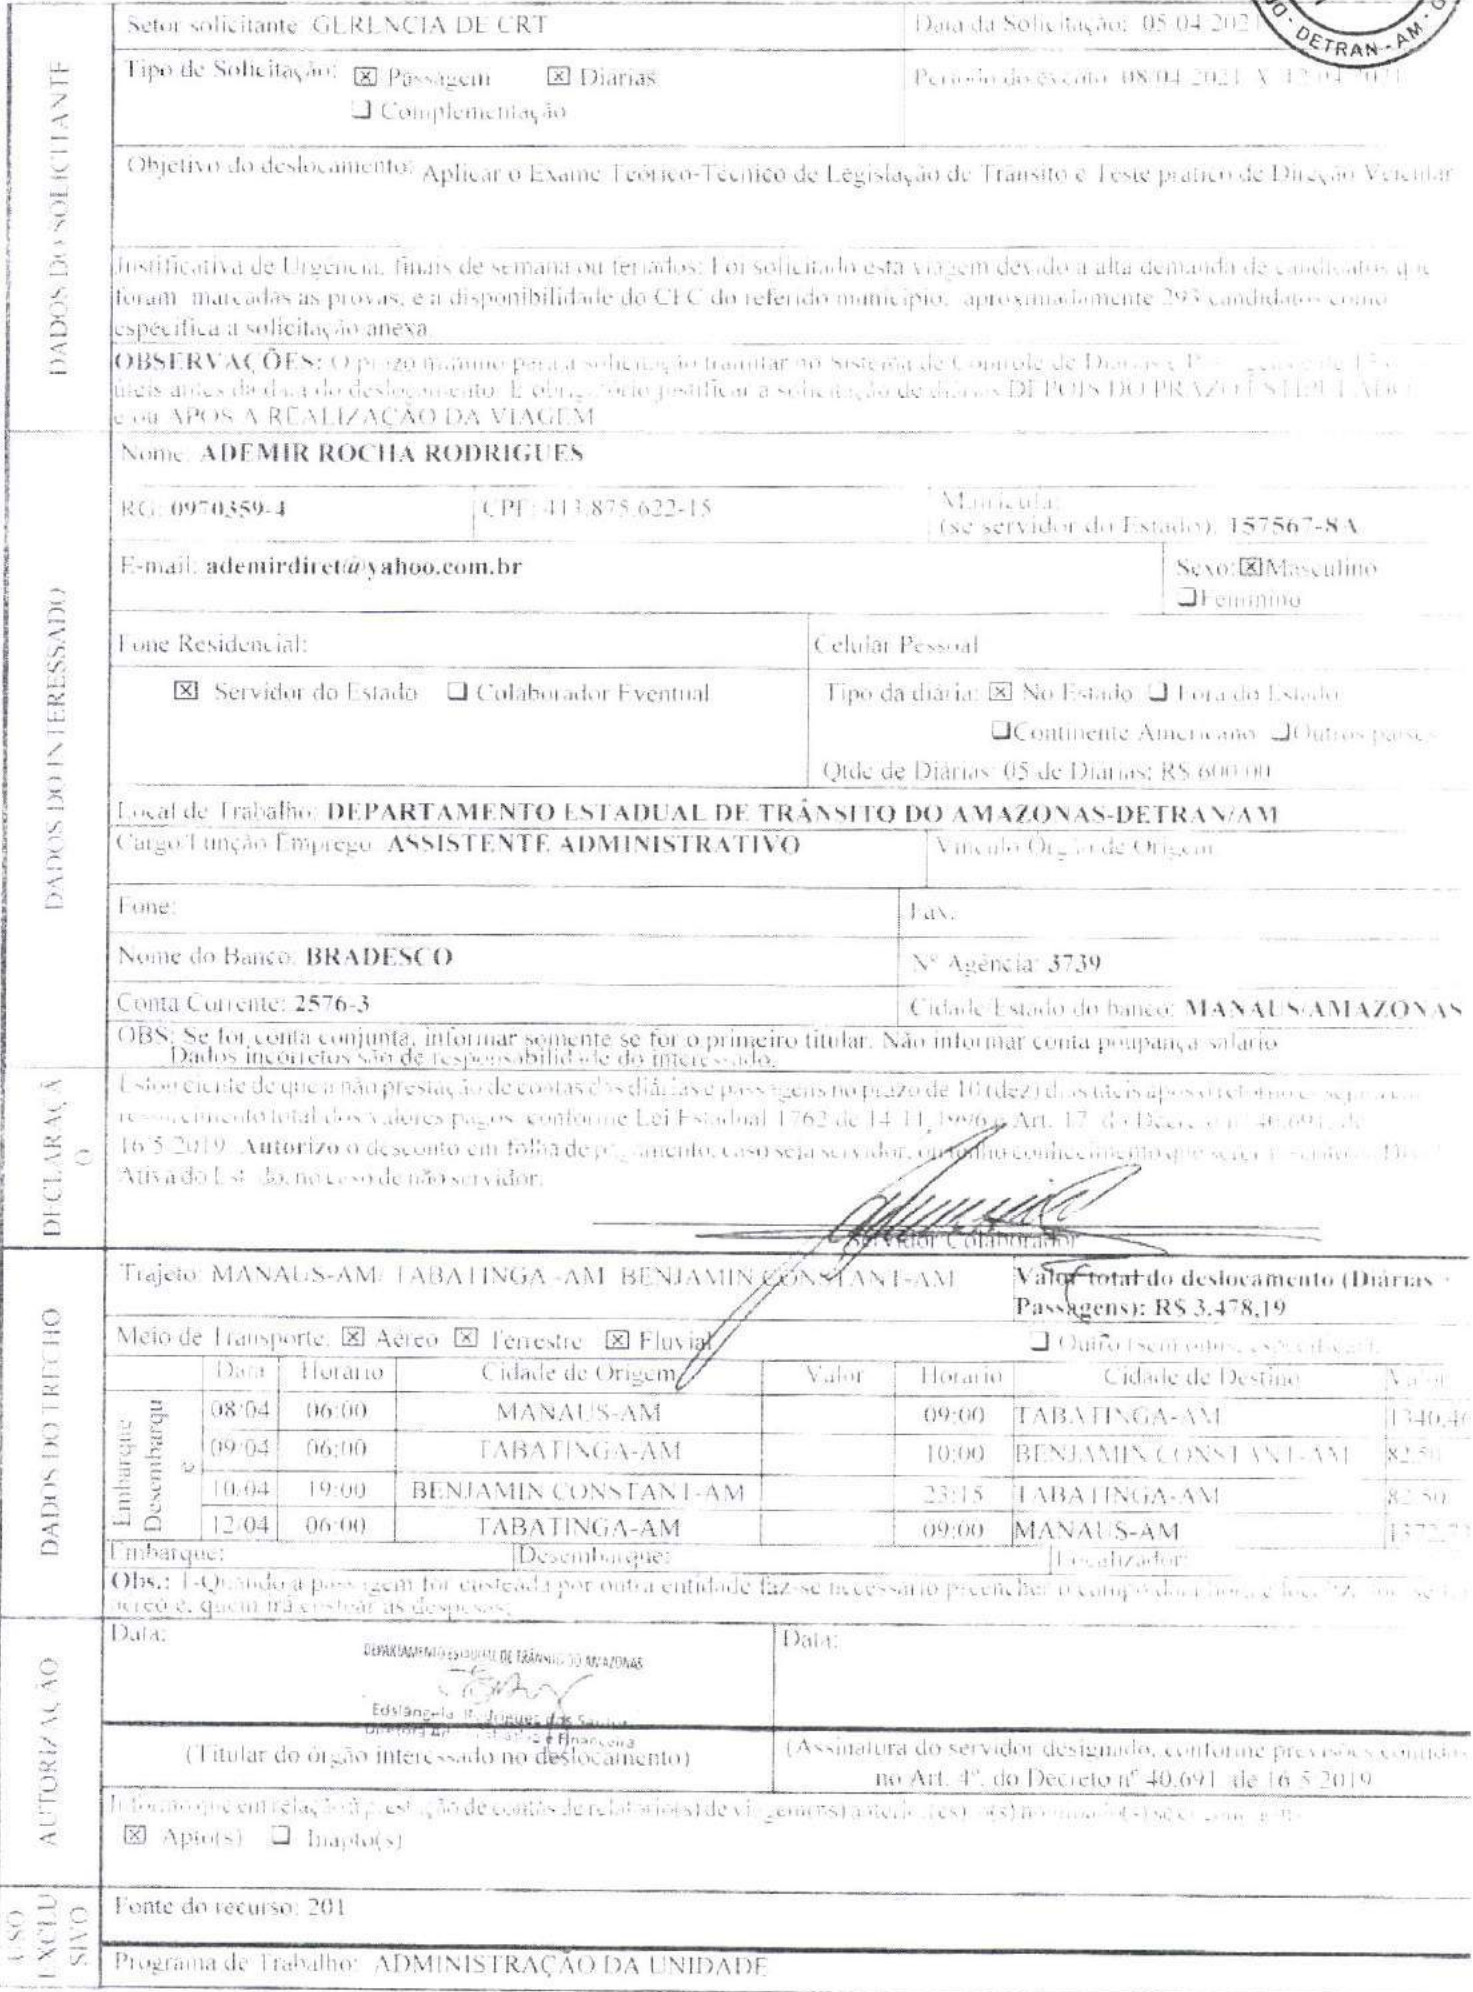 DETRAN-AM
Setor solicitante: GERENCIA DE CRT
Data da Solicitação: 05/04/2021
DADOS DO SOLICITANTE
Tipo de Solicitação: ☒ Passagem ☒ Diárias
☐ Complementação
Período do evento: 08/04/2021 A 12/04/2021
Objetivo do deslocamento: Aplicar o Exame Teórico-Técnico de Legislação de Trânsito e Teste pratico de Direção Veicular
Justificativa de Urgência, finais de semana ou feriados: Foi solicitado esta viagem devido a alta demanda de candidatos que
foram marcadas as provas, e a disponibilidade do CFC do referido município, aproximadamente 293 candidatos como
especifica a solicitação anexa.
OBSERVAÇÕES: O prazo mínimo para a solicitação tramitar no Sistema de Controle de Diárias e
úteis antes da data do deslocamento. É obrigatório justificar a solicitação de diárias DEPOIS DO PRAZO ESTIPULADO
e ou APOS A REALIZAÇÃO DA VIAGEM
DADOS DO INTERESSADO
Nome: ADEMIR ROCHA RODRIGUES
RG: 0970359-4
CPF: 413.875.622-15
Matricula:
(se servidor do Estado): 157567-8A
E-mail: ademirdiret@yahoo.com.br
Sexo: ☒ Masculino
☐ Feminino
Fone Residencial:
Celular Pessoal
☒ Servidor do Estado ☐ Colaborador Eventual
Tipo da diária: ☒ No Estado ☐ Fora do Estado
☐ Continente Americano ☐ Outros países
Qtde de Diárias: 05 de Diarias: R$ 600,00
Local de Trabalho: DEPARTAMENTO ESTADUAL DE TRÂNSITO DO AMAZONAS-DETRAN/AM
Cargo/Função/Emprego: ASSISTENTE ADMINISTRATIVO
Vinculo Órgão de Origem
Fone:
Fax:
Nome do Banco: BRADESCO
Nº Agência: 3739
Conta Corrente: 2576-3
Cidade/Estado do banco: MANAUS/AMAZONAS
OBS: Se for conta conjunta, informar somente se for o primeiro titular. Não informar conta poupança/salário
Dados incorretos são de responsabilidade do interessado.
DECLARAÇÃ
O
Estou ciente de que a não prestação de contas das diárias e passagens no prazo de 10 (dez) dias úteis após o retorno
ressarcimento total dos valores pagos, conforme Lei Estadual 1762 de 14/11/1986 e Art. 17 do Decreto nº 40.691, de
16/5/2019. Autorizo o desconto em folha de pagamento, caso seja servidor, ou tenho conhecimento que
Ativa do Estado, no caso de não servidor.
Servidor/Colaborador
DADOS DO TRECHO
Trajeto: MANAUS-AM/ TABATINGA -AM/ BENJAMIN CONSTANT-AM
Valor total do deslocamento (Diárias +
Passagens): R$ 3.478,19
Meio de Transporte: ☒ Aéreo ☒ Terrestre ☒ Fluvial
☐ Outro
Data Horário Cidade de Origem Valor Horario Cidade de Destino Valor
Embarque
Desembarqu
e
08/04 06:00 MANAUS-AM 09:00 TABATINGA-AM 1340,46
09/04 06:00 TABATINGA-AM 10:00 BENJAMIN CONSTANT-AM 82,50
10/04 19:00 BENJAMIN CONSTANT-AM 23:15 TABATINGA-AM 82,50
12/04 06:00 TABATINGA-AM 09:00 MANAUS-AM 1372,73
Embarque: Desembarque: Localizador:
Obs.: 1-Quando a passagem for custeada por outra entidade faz-se necessário preencher o campo
aéreo e, quem irá custear as despesas.
AUTORIZAÇÃO
Data:
Data:
DEPARTAMENTO ESTADUAL DE TRÂNSITO DO AMAZONAS
Edslângela Rodrigues dos Santos
Diretora Administrativa e Financeira
(Titular do órgão interessado no deslocamento)
(Assinatura do servidor designado, conforme previsões contidas
no Art. 4º, do Decreto nº 40.691 de 16/5/2019
Informo que em relação à prestação de contas de relatório(s) de viagem(ns)
☒ Apto(s) ☐ Inapto(s)
USO
EXCLU
SIVO
Fonte do recurso: 201
Programa de Trabalho: ADMINISTRAÇÃO DA UNIDADE